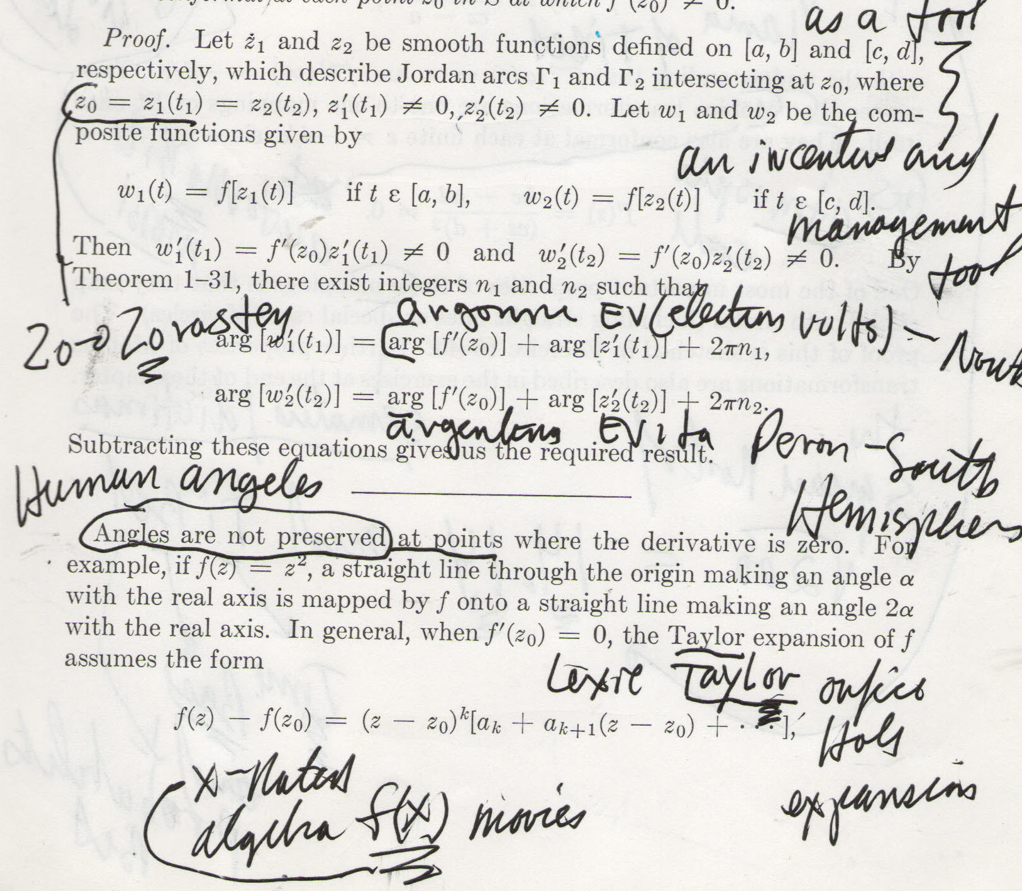 conformal at each point z₀ in S at which f′(z₀) ≠ 0.
as a tool
Proof. Let z₁ and z₂ be smooth functions defined on [a, b] and [c, d],
respectively, which describe Jordan arcs Γ₁ and Γ₂ intersecting at z₀, where
z₀ = z₁(t₁) = z₂(t₂), z₁′(t₁) ≠ 0, z₂′(t₂) ≠ 0. Let w₁ and w₂ be the com-
posite functions given by
an incentive and
w₁(t) = f[z₁(t)] if t ε [a, b], w₂(t) = f[z₂(t)] if t ε [c, d].
management
Then w₁′(t₁) = f′(z₀)z₁′(t₁) ≠ 0 and w₂′(t₂) = f′(z₀)z₂′(t₂) ≠ 0. By
tool
Theorem 1–31, there exist integers n₁ and n₂ such that
Zo-oZo rastey argonne EV (electron volts) - North
arg [w₁′(t₁)] = arg [f′(z₀)] + arg [z₁′(t₁)] + 2πn₁,
arg [w₂′(t₂)] = arg [f′(z₀)] + arg [z₂′(t₂)] + 2πn₂.
argentina EVita Peron - South
Subtracting these equations gives us the required result.
Human angeles
Hemisphere
Angles are not preserved at points where the derivative is zero. For
example, if f(z) = z², a straight line through the origin making an angle α
with the real axis is mapped by f onto a straight line making an angle 2α
with the real axis. In general, when f′(z₀) = 0, the Taylor expansion of f
assumes the form
Taylor orifice
f(z) − f(z₀) = (z − z₀)ᵏ[aₖ + aₖ₊₁(z − z₀) + · · ·],
Hole
X-Rated
expansion
algebra f(X) movies